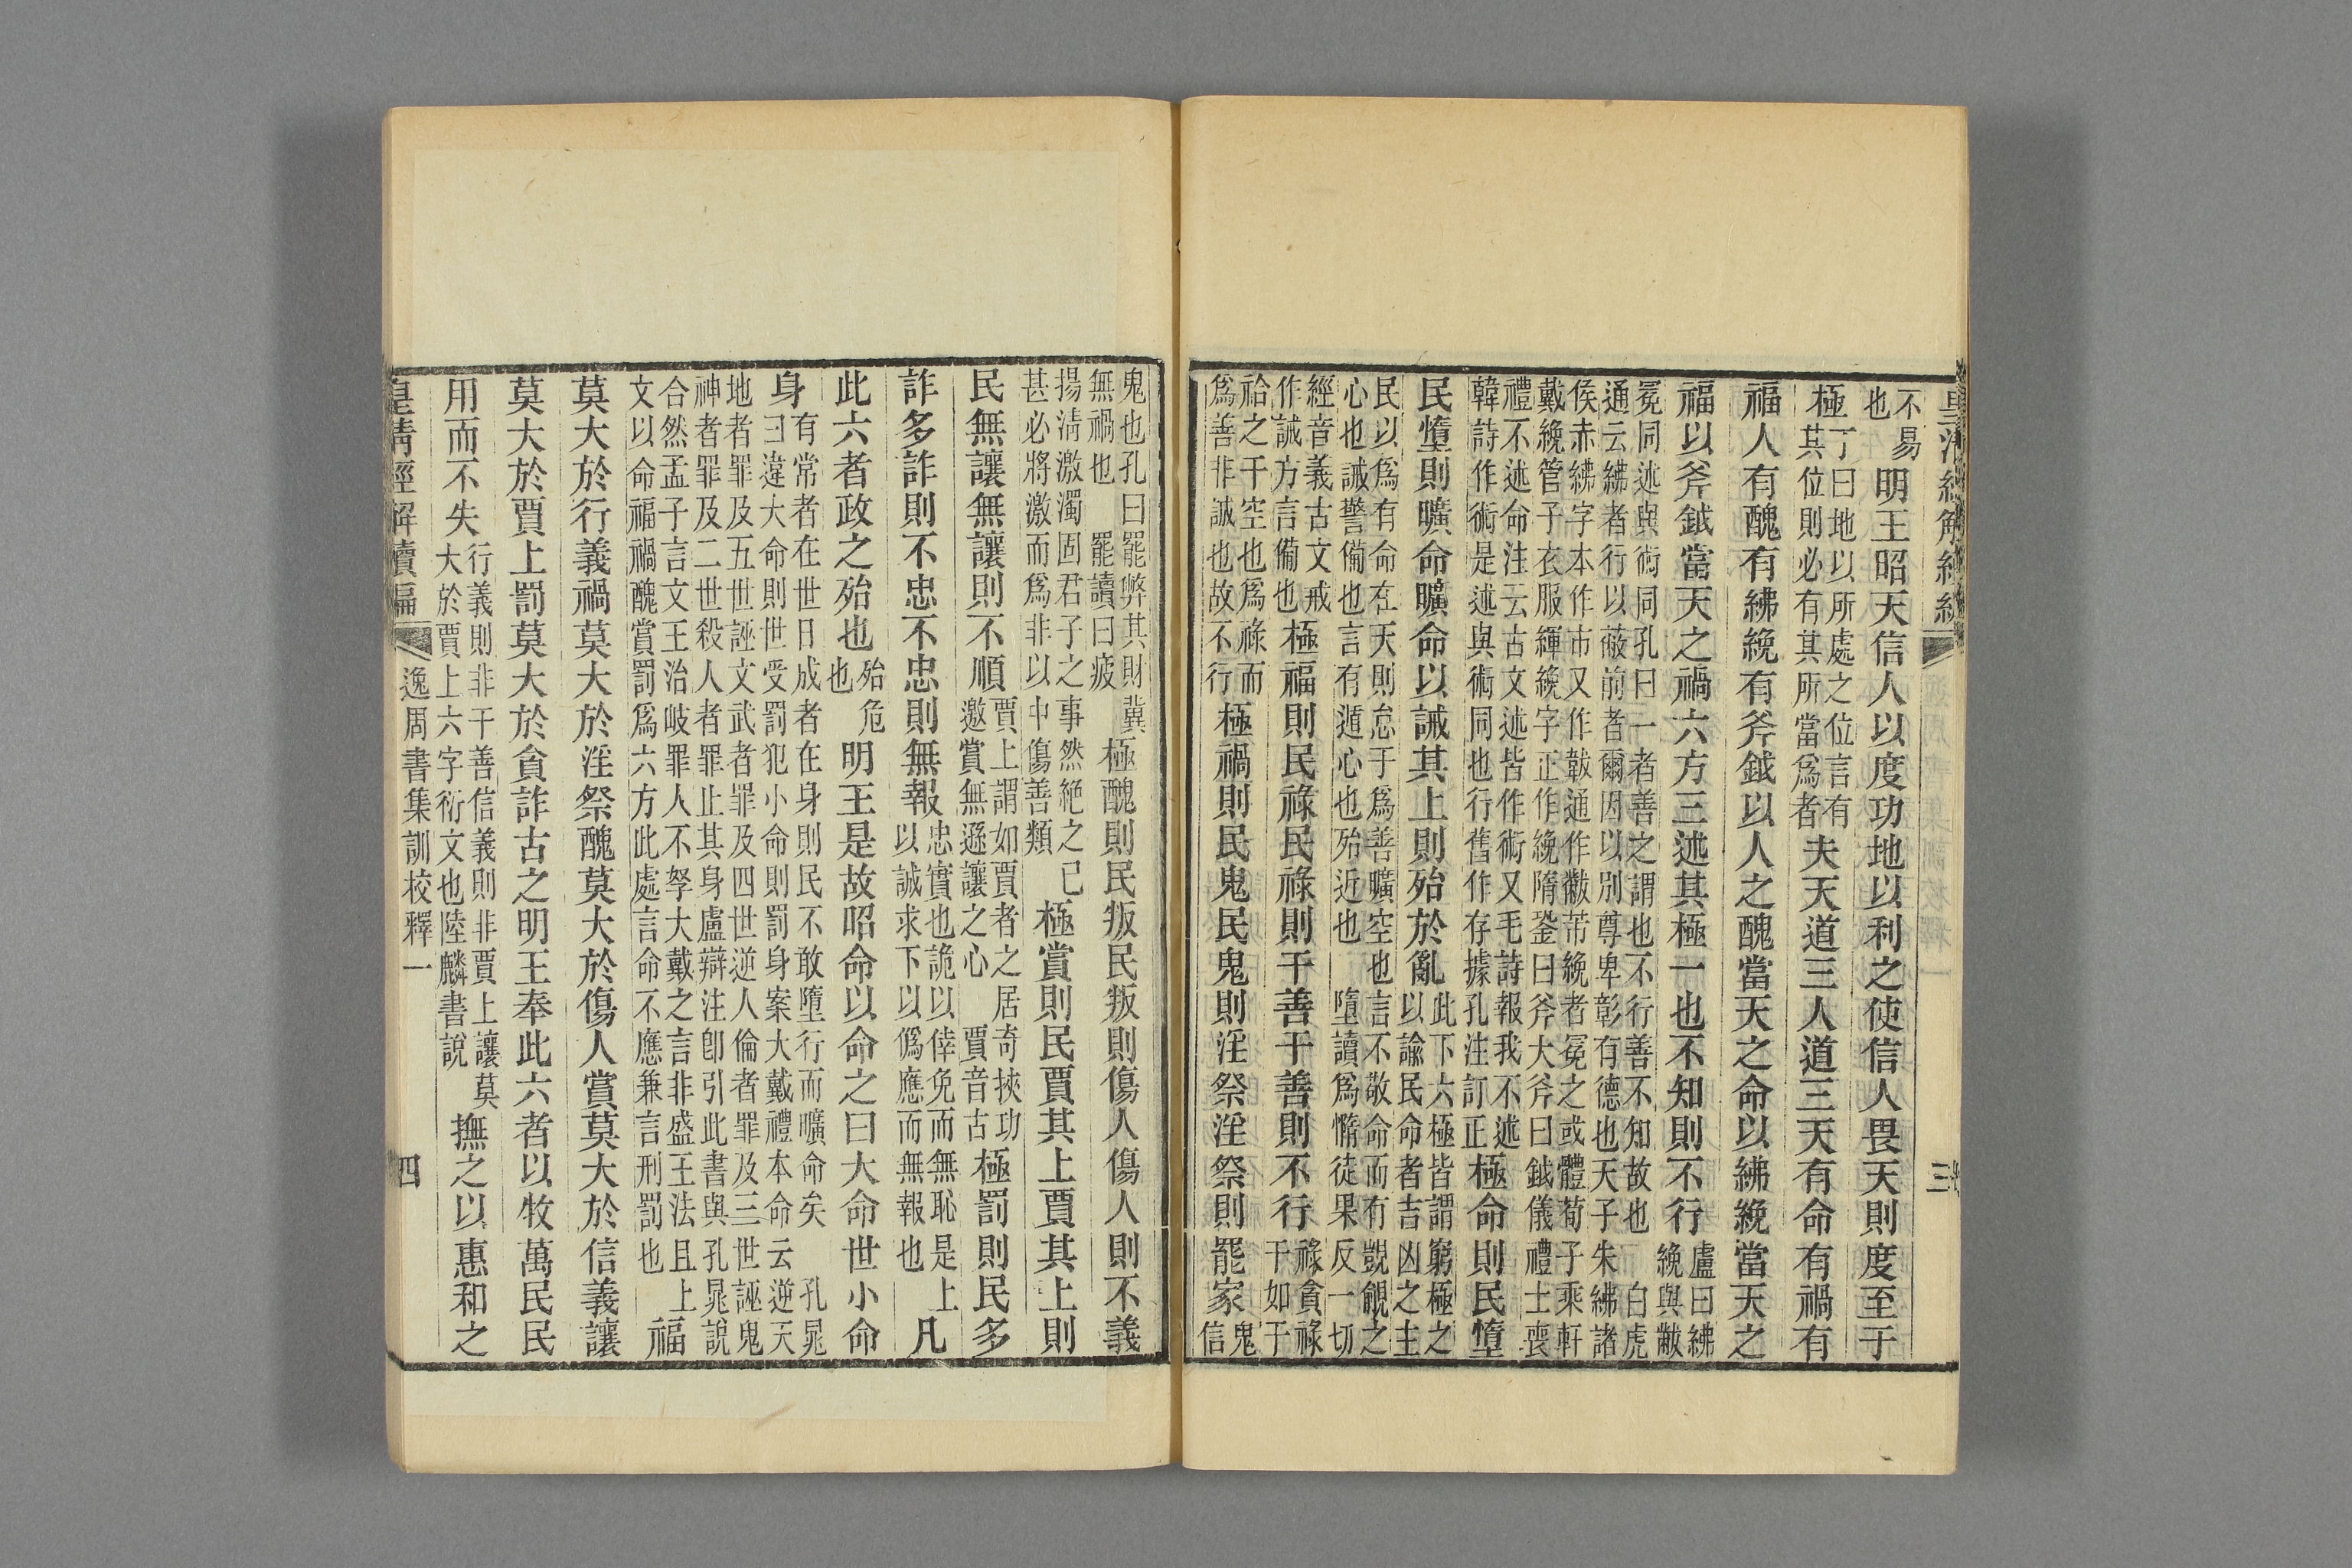 不易
也
明王昭天信人以度功地以利之使信人畏天則度至于
極
丁曰地以所處之位言有
其位則必有其所當爲者
夫天道三人道三天有命有禍有
福人有醜有紼絻有斧鉞以人之醜當天之命以紼絻當天之
福以斧鉞當天之禍六方三述其極一也不知則不行
盧曰紼
絻與黻
冕同述與術同孔曰一者善之謂也不行善不知故也 白虎
通云紼者行以蔽前者爾因以別尊卑彰有德也天子朱紼諸
侯赤紼字本作巿又作韍通作黻芾絻者冕之或體荀子乘軒
戴絻管子衣服緷絻字正作絻隋釜曰斧大斧曰鉞儀禮士喪
禮不述命注云古文述皆作術又毛詩報我不述
韓詩作術是述與術同也行舊作存據孔注訂正
極命則民墮
民墮則曠命曠命以誡其上則殆於亂
此下六極皆謂窮極之
以諭民命者吉凶之主
民以爲有命在天則怠于爲善曠空也言不敬命而有覬覦之
心也誡警備也言有遁心也殆近也 墮讀爲惰徒果反一切
經音義古文戒
作誡方言備也
極福則民祿民祿則干善干善則不行
祿貪祿
干如干
祫之干空也爲祿而
爲善非誠也故不行
極禍則民鬼民鬼則淫祭淫祭則罷家
鬼
信
三
鬼也孔曰罷弊其財冀
無禍也 罷讀曰疲
極醜則民叛民叛則傷人傷人則不義
揚淸激濁固君子之事然絶之已
甚必將激而爲非以中傷善類
極賞則民賈其上賈其上則
民無讓無讓則不順
賈上謂如賈者之居奇挾功
邀賞無遜讓之心 賈音古
極罰則民多
詐多詐則不忠不忠則無報
忠實也詭以倖免而無恥是上
以誠求下以僞應而無報也
凡
此六者政之殆也
殆危
也
明王是故昭命以命之曰大命世小命
身
有常者在世曰成者在身則民不敢墮行而曠命矣 孔晁
曰違大命則世受罰犯小命則罰身案大戴禮本命云逆天
地者罪及五世誣文武者罪及四世逆人倫者罪及三世誣鬼
神者罪及二世殺人者罪止其身盧辯注卽引此書與孔晁說
合然孟子言文王治岐罪人不孥大戴之言非盛王法且上
文以命福禍醜賞罰爲六方此處言命不應兼言刑罰也
福
莫大於行義禍莫大於淫祭醜莫大於傷人賞莫大於信義讓
莫大於賈上罰莫大於貪詐古之明王奉此六者以牧萬民民
用而不失
行義則非干善信義則非賈上讓莫
大於賈上六字衍文也陸麟書說
撫之以惠和之
皇清經解續編
逸周書集訓校釋一
四